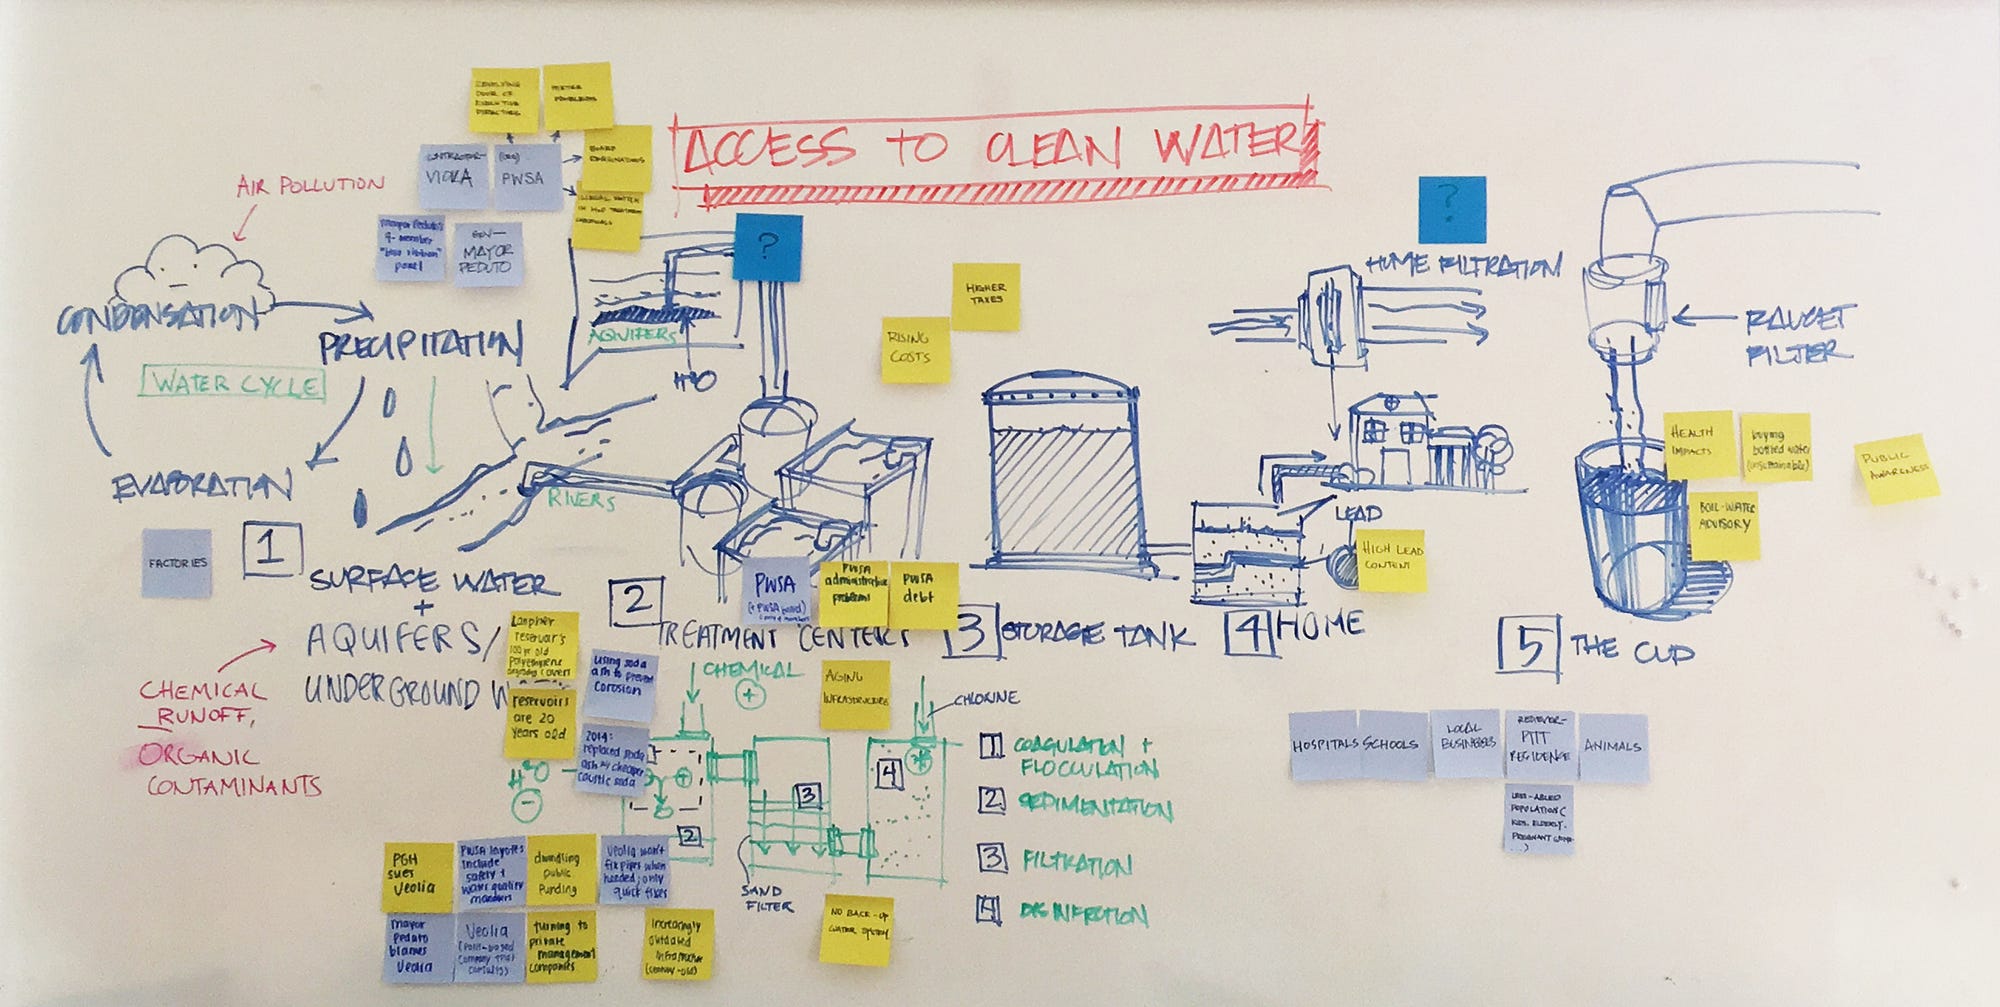 ACCESS TO CLEAN WATER
REVOLVING
DOOR OF
EXECUTIVE
DIRECTORS
METER
PROBLEMS
CONTRACTOR-
(ORG)
PWSA
BOARD
RESIGNATIONS
ILLEGAL SWITCH
IN H2O TREATMENT
CHEMICALS
mayor Peduto's
9-member
"blue ribbon"
panel
GOV-
MAYOR
PEDUTO
AIR POLLUTION
CONDENSATION
PRECIPITATION
WATER CYCLE
EVAPORATION
AQUIFERS
H2O
?
RIVERS
HIGHER
TAXES
RISING
COSTS
?
HOME FILTRATION
FAUCET
FILTER
HEALTH
IMPACTS
buying
bottled water
(unsustainable)
PUBLIC
AWARENESS
BOIL-WATER
ADVISORY
LEAD
HIGH LEAD
CONTENT
FACTORIES
1
SURFACE WATER
+
AQUIFERS/
UNDERGROUND W
2
TREATMENT CENTERS
PWSA
(+ PWSA board)
PWSA
administrative
problems
PWSA
debt
3 STORAGE TANK
4 HOME
5 THE CUP
CHEMICAL
RUNOFF,
ORGANIC
CONTAMINANTS
Lanpher
reservoir's
100 yr old
polyethylene
covers
reservoirs
are 20
years old
using soda
ash to prevent
corrosion
2014:
replaced soda
ash w/ cheaper
caustic soda
CHEMICAL
+
AGING
INFRASTRUCTURE
CHLORINE
H2O
−
+
2
3
4
SAND
FILTER
1 COAGULATION +
FLOCCULATION
2 SEDIMENTATION
3 FILTRATION
4 DISINFECTION
HOSPITALS
SCHOOLS
LOCAL
BUSINESSES
RECIEVER-
PITT
RESIDENCE
ANIMALS
LESS-ABLED
POPULATIONS (
KIDS, ELDERLY,
PREGNANT
...)
PGH
sues
Veolia
PWSA layoffs
include
safety +
water quality
members
dwindling
public
funding
Veolia won't
fix pipes when
needed; only
quick fixes
mayor
Peduto
blames
Veolia
Veolia
(Paris-based
company that
consults)
turning to
private
management
companies
increasingly
outdated
infrastructure
(century-old)
NO BACK-UP
WATER SYSTEM